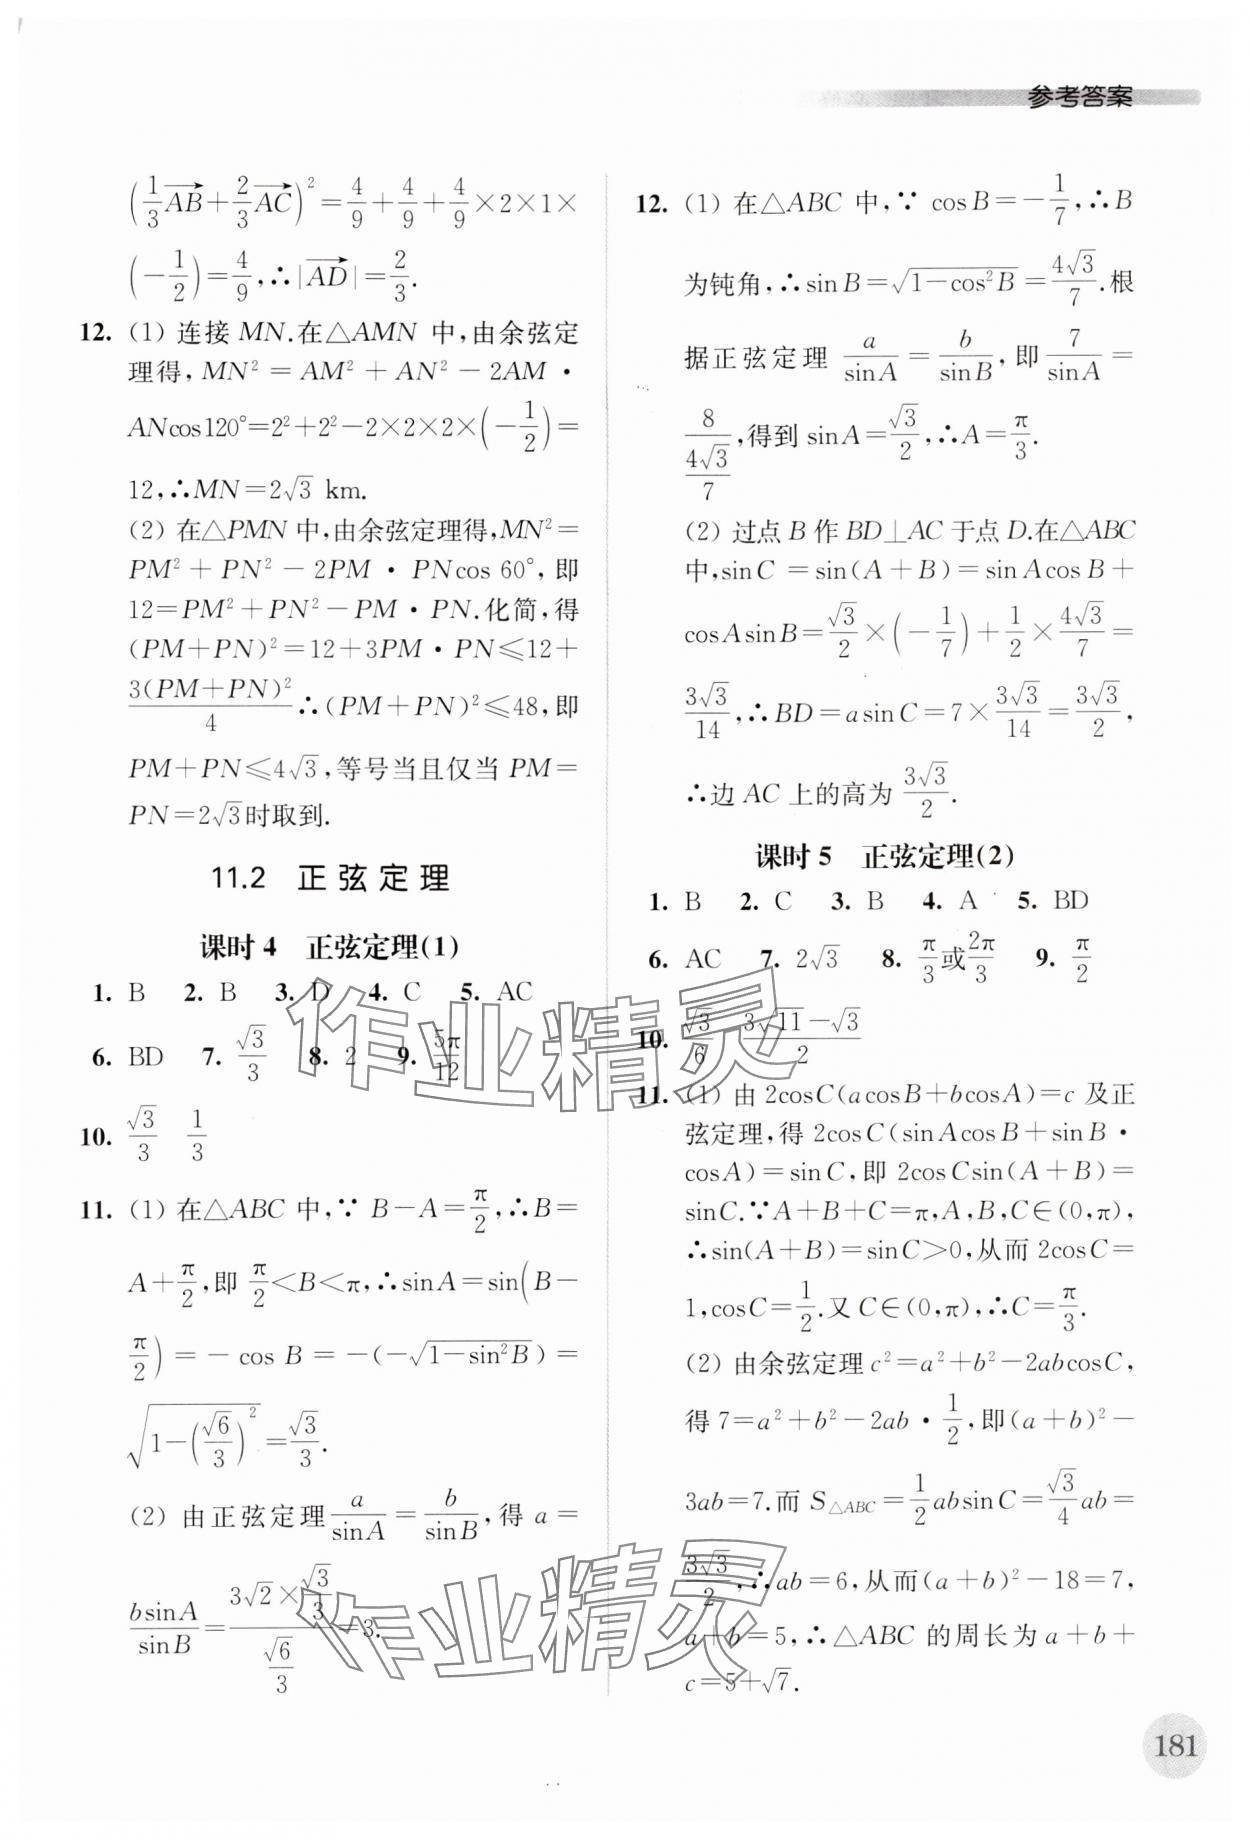 参考答案
(1/3 AB→ + 2/3 AC→)² = 4/9 + 4/9 + 4/9 ×2×1×
(−1/2) = 4/9, ∴|AD→| = 2/3.
12. (1) 连接 MN.在△AMN 中,由余弦定
理得, MN² = AM² + AN² − 2AM ·
ANcos120°=2²+2²−2×2×2×(−1/2)=
12,∴MN=2√3 km.
(2) 在△PMN 中,由余弦定理得,MN²=
PM² + PN² − 2PM · PNcos 60°, 即
12=PM²+PN²−PM · PN.化简,得
(PM+PN)²=12+3PM · PN≤12+
3(PM+PN)²/4 ∴(PM+PN)²≤48,即
PM+PN≤4√3,等号当且仅当 PM=
PN=2√3时取到.
11.2 正弦定理
课时 4 正弦定理(1)
1. B 2. B 3. D 4. C 5. AC
6. BD 7. √3/3 8. 2 9. 5π/12
10. √3/3 1/3
11. (1) 在△ABC 中,∵ B−A=π/2,∴B=
A+π/2,即 π/2<B<π,∴sinA=sin(B−
π/2) = − cos B = −(−√(1−sin²B)) =
√(1−(√6/3)²)=√3/3.
(2) 由正弦定理 a/sinA = b/sinB,得 a =
bsinA/sinB = (3√2×√3/3)/(√6/3) =3.
12. (1) 在△ABC 中,∵ cosB=−1/7,∴B
为钝角,∴sinB=√(1−cos²B)=4√3/7.根
据正弦定理 a/sinA = b/sinB,即 7/sinA =
8/(4√3/7),得到 sinA=√3/2,∴A=π/3.
(2) 过点 B 作 BD⊥AC 于点 D.在△ABC
中,sinC =sin(A+B)=sinAcosB+
cosAsinB=√3/2×(−1/7)+1/2×4√3/7=
3√3/14,∴BD=asinC=7×3√3/14=3√3/2,
∴边 AC 上的高为 3√3/2.
课时 5 正弦定理(2)
1. B 2. C 3. B 4. A 5. BD
6. AC 7. 2√3 8. π/3或2π/3 9. π/2
10. √3/6 (3√11−√3)/2
11. (1) 由 2cosC(acosB+bcosA)=c 及正
弦定理,得 2cosC(sinAcosB+sinB ·
cosA)=sinC,即 2cosCsin(A+B)=
sinC.∵A+B+C=π,A,B,C∈(0,π),
∴sin(A+B)=sinC>0,从而 2cosC=
1,cosC=1/2.又 C∈(0,π),∴C=π/3.
(2) 由余弦定理 c²=a²+b²−2abcosC,
得 7=a²+b²−2ab · 1/2,即(a+b)²−
3ab=7.而 S△ABC=1/2absinC=√3/4ab=
3√3/2,∴ab=6,从而(a+b)²−18=7,
a+b=5,∴△ABC 的周长为 a+b+
c=5+√7.
作业精灵
作业精灵
181